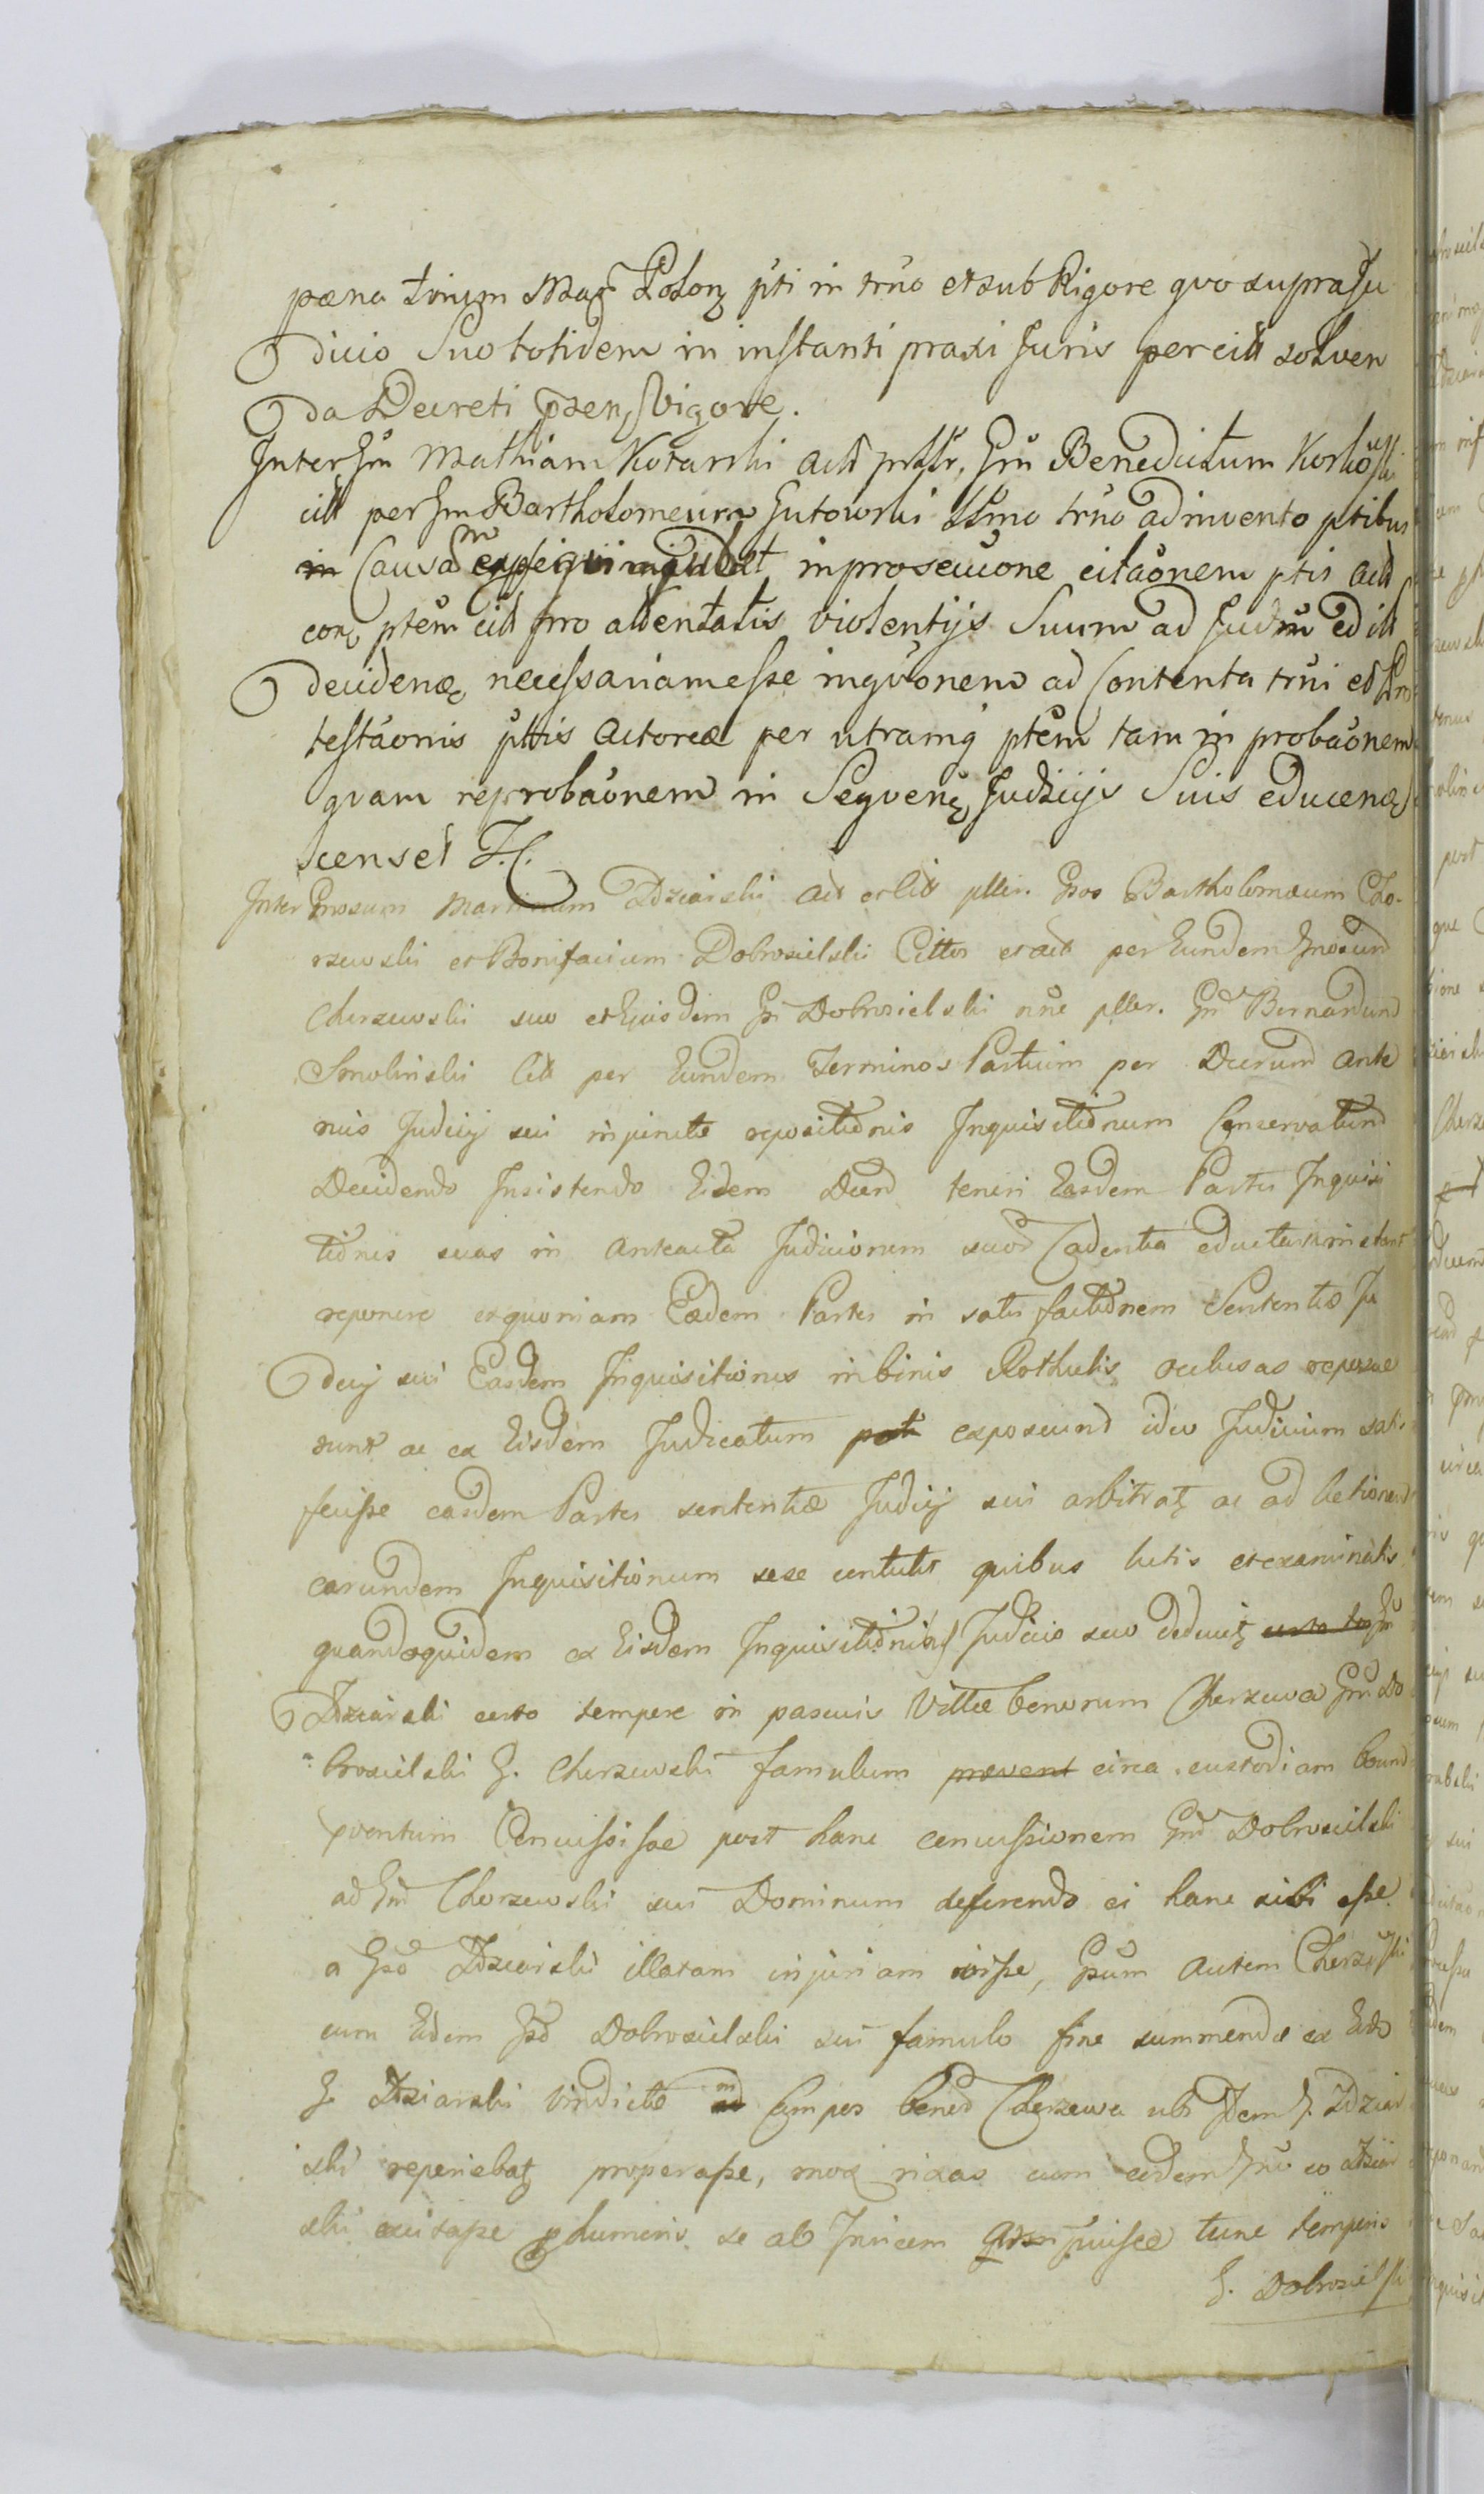 pæna trium Marc Polonɀ pti in trno et sub Rigore quo supra Ju
dicio Suo totidem in instanti praxi Juris per citt solven
da Decreti præn vigore.
Inter Gm Mathiam Kotarski act pltr. Gm Benedictum Korko
citt per Gm Bartholomeum Gutowski trno adinvento ptibus
in Causa in prosecuone citaonem ptis actt
corɀ ptem citt pro attentatis violentijs Suum ad Judm
decidenɀ necessariam esse inquonem ad Contenta trni et Pro
testaonis ptis Actoreæ per utramq ptem tam in probaonem
quam reprobaonem in Sequenɀ Judicijs Suis educenɀ
censet J.C.
Inter Gnosum Martinum Zdziarski Act et Citt plter. Gsos Bartholomæum Cho-
rzewski et Bonifacium Dobrosielski Cittos et act per Eundem Gnosum
Cherzewski suo et Ejusdem Gsi Dobrosielski nne plter. Gm Bernardum
Smolinski Citt per Eundem Terminos Partium per Decrum Ante
rius Judicij sui repositionis Inquisitionum Conservatum
Decidendo Insistendo Eidem Decrto teneri Easdem Partes Inquisi
tiones suas in Anteacta Judiciorum suor Cadentia eductas
reponere et quoniam Eædem Partes in satisfactionem Sententiæ Ju
dicij sui Easdem Inquisitiones in binis Rothulis oclusas reposue
runt ac ex Eisdem Judicatum exposcunt ideo Judicium satis
fecisse easdem Partes sententiæ Judicij sui arbitratɀ ac ad lectionem
earundem Inquisitionum sese contulit quibus lectis et examinatis
quandoquidem ex Eisdem Inquisitionibus Judicio suo deducitɀ Gm
Zdziarski certo tempore in pascuis Villæ bonorum Cherzewa Gm Do
brosielski G. Cherzewski famulum prævent circa custodiam bound
ventum Concussisse post hanc concussionem Gm Dobrosielski
ad Gm Cherzewski sui Dominum deferendo ei hanc sibi esse
a Gso Zdziarski illatam injuriam ivisse, Gsum Autem Cherzski
cum Eodem Gso Dobrosielski sui famulo fine summendæ ex Eodo
G. Zdziarski vindictæ in Campos bonor Cherzewa ubi Idem G. Zdziar
ski reperiebatɀ properasse, mox rixas cum eodem Gno Zdziar
ski excitasse se ab Invicem tunc temporis
G. Dobrosielski